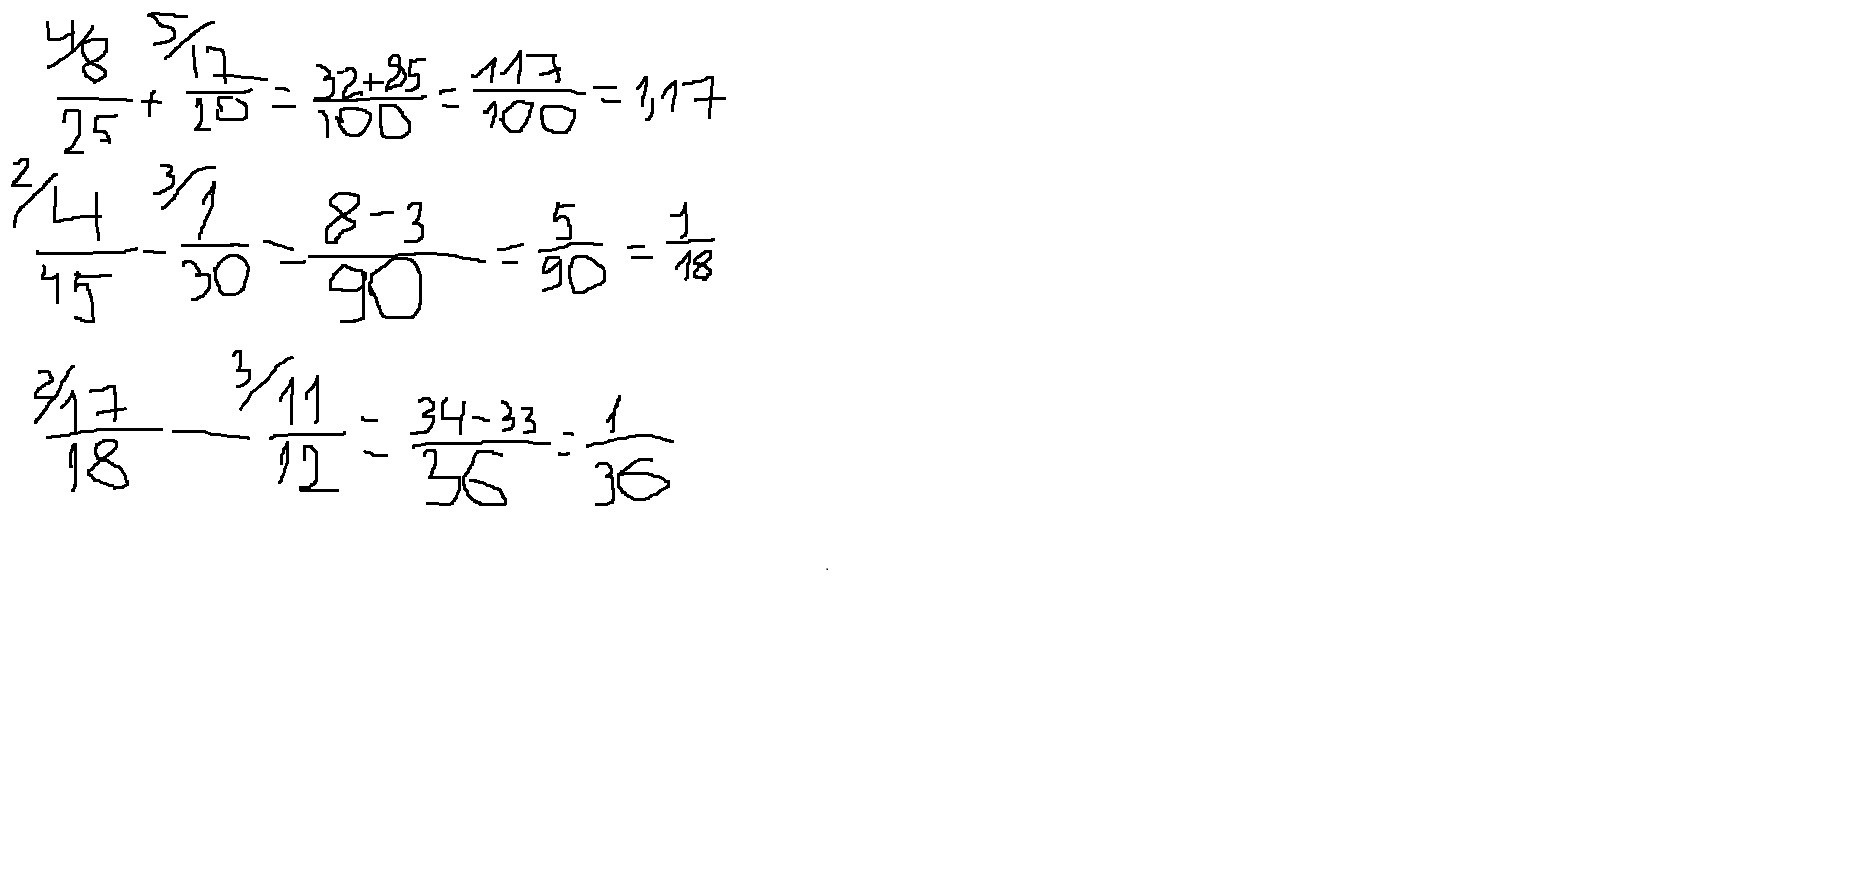 4/8/25 + 5/17/20 = 32+85/100 = 117/100 = 1,17
2/4/45 - 3/1/30 = 8-3/90 = 5/90 = 1/18
2/17/18 - 3/11/12 = 34-33/36 = 1/36